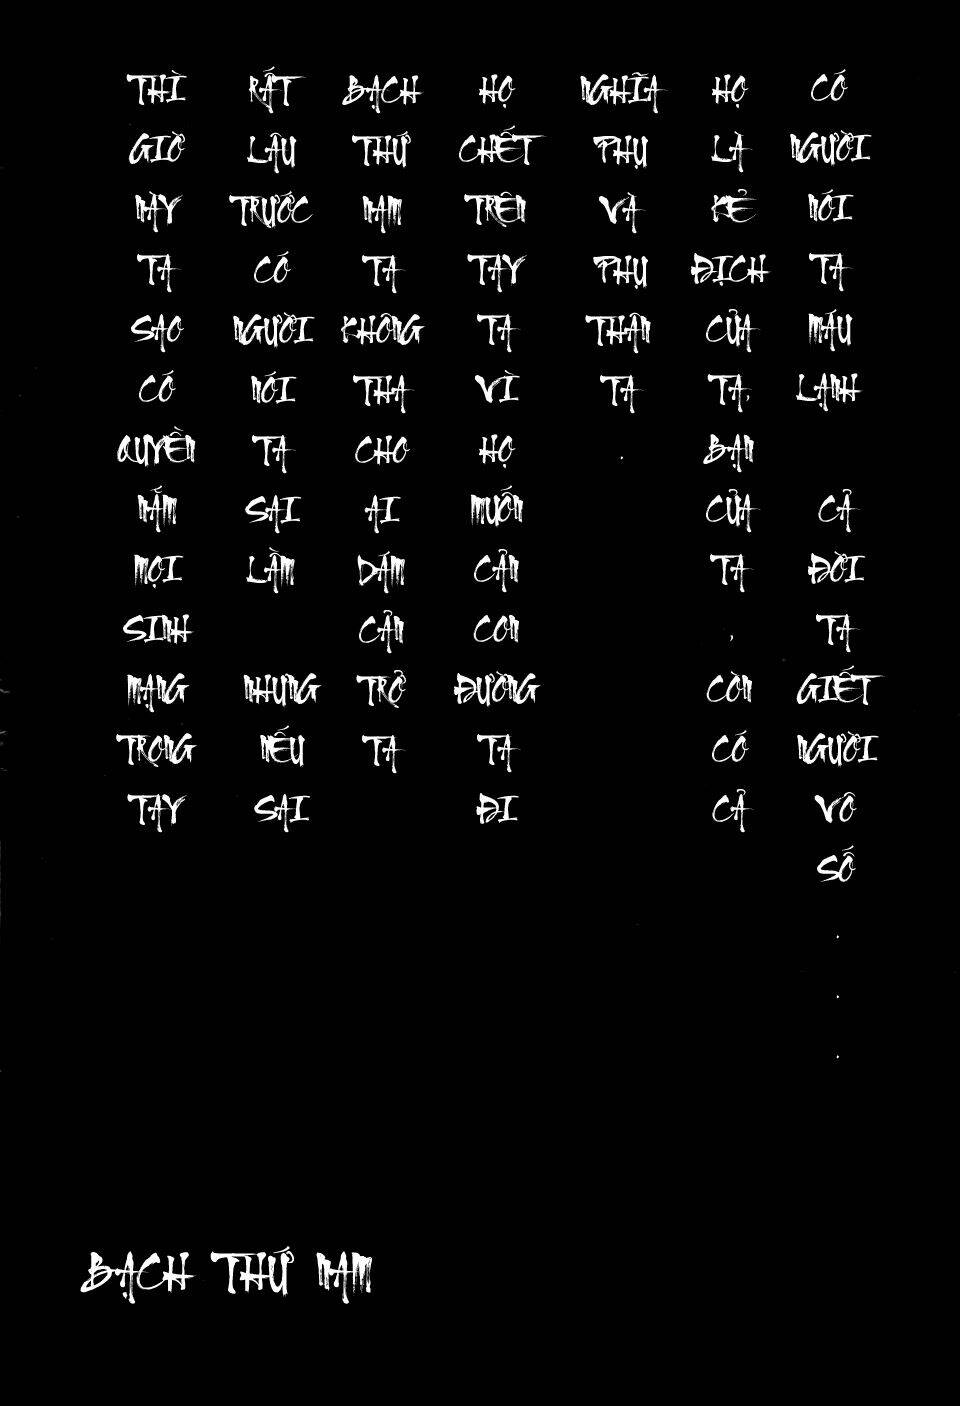 CÓ NGƯỜI NÓI TA MÁU LẠNH CẢ ĐỜI TA GIẾT NGƯỜI VÔ SỐ . . .
HỌ LÀ KẺ ĐỊCH CỦA TA, BẠN CỦA TA , CÒN CÓ CẢ
NGHĨA PHỤ VÀ PHỤ THÂN TA .
HỌ CHẾT TRÊN TAY TA VÌ HỌ MUỐN CẢN CON ĐƯỜNG TA ĐI
BẠCH THỨ NAM TA KHÔNG THA CHO AI DÁM CẢN TRỞ TA
RẤT LÂU TRƯỚC CÓ NGƯỜI NÓI TA SAI LẦM NHƯNG NẾU SAI
THÌ GIỜ NÀY TA SAO CÓ QUYỀN NẮM MỌI SINH MẠNG TRONG TAY
BẠCH THỨ NAM